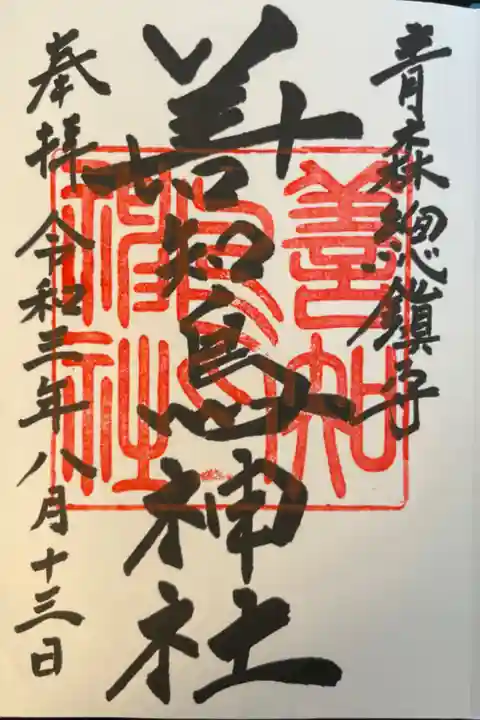 青森總鎮守
善知鳥神社
奉拝 令和三年八月十三日
善知
鳥
神社